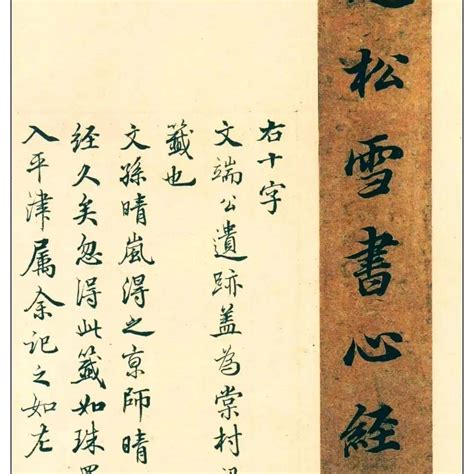 松雪書心經
右十字
文端公遺跡蓋為棠村
籤也
文孫晴嵐得之京師晴
經久矣忽得此籤如珠
入平津属余記之如左